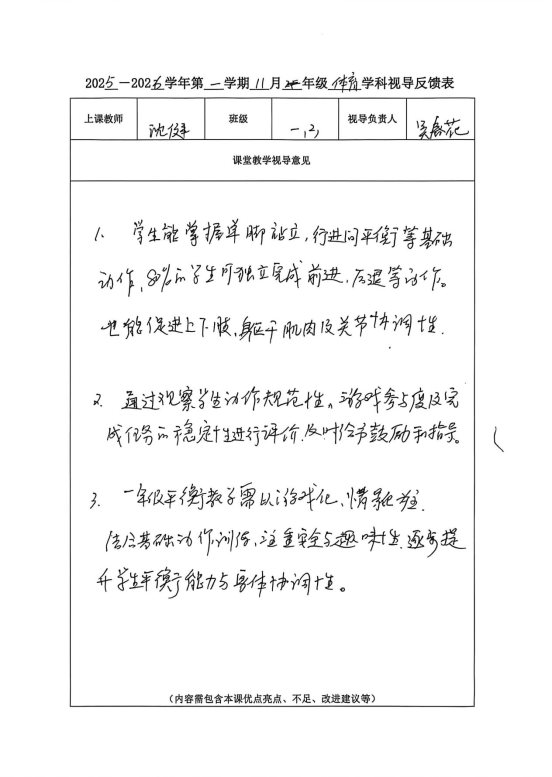 2025－2026学年第一学期11月一年级体育学科视导反馈表
上课教师 沈 班级 一.(2) 视导负责人 吴春花
课堂教学视导意见
1. 学生能掌握单脚站立，行进间平衡等基础
动作，80%的学生可独立完成前进，后退等动作。
也能促进上下肢，躯干肌肉及关节协调性.
2. 通过观察学生动作规范性。游戏参与度及完
成任务的稳定性进行评价，及时给予鼓励和指导。
3. 一年级平衡教学需以游戏化，情景化为主.
结合基础动作训练，注重安全与趣味性.逐步提
升学生平衡能力与身体协调性。
（内容需包含本课优点亮点、不足、改进建议等）